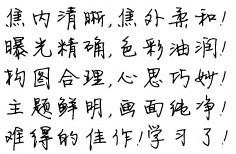 焦内清晰,焦外柔和!
曝光精确,色彩油润!
构图合理,心思巧妙!
主题鲜明,画面纯净!
难得的佳作!学习了!